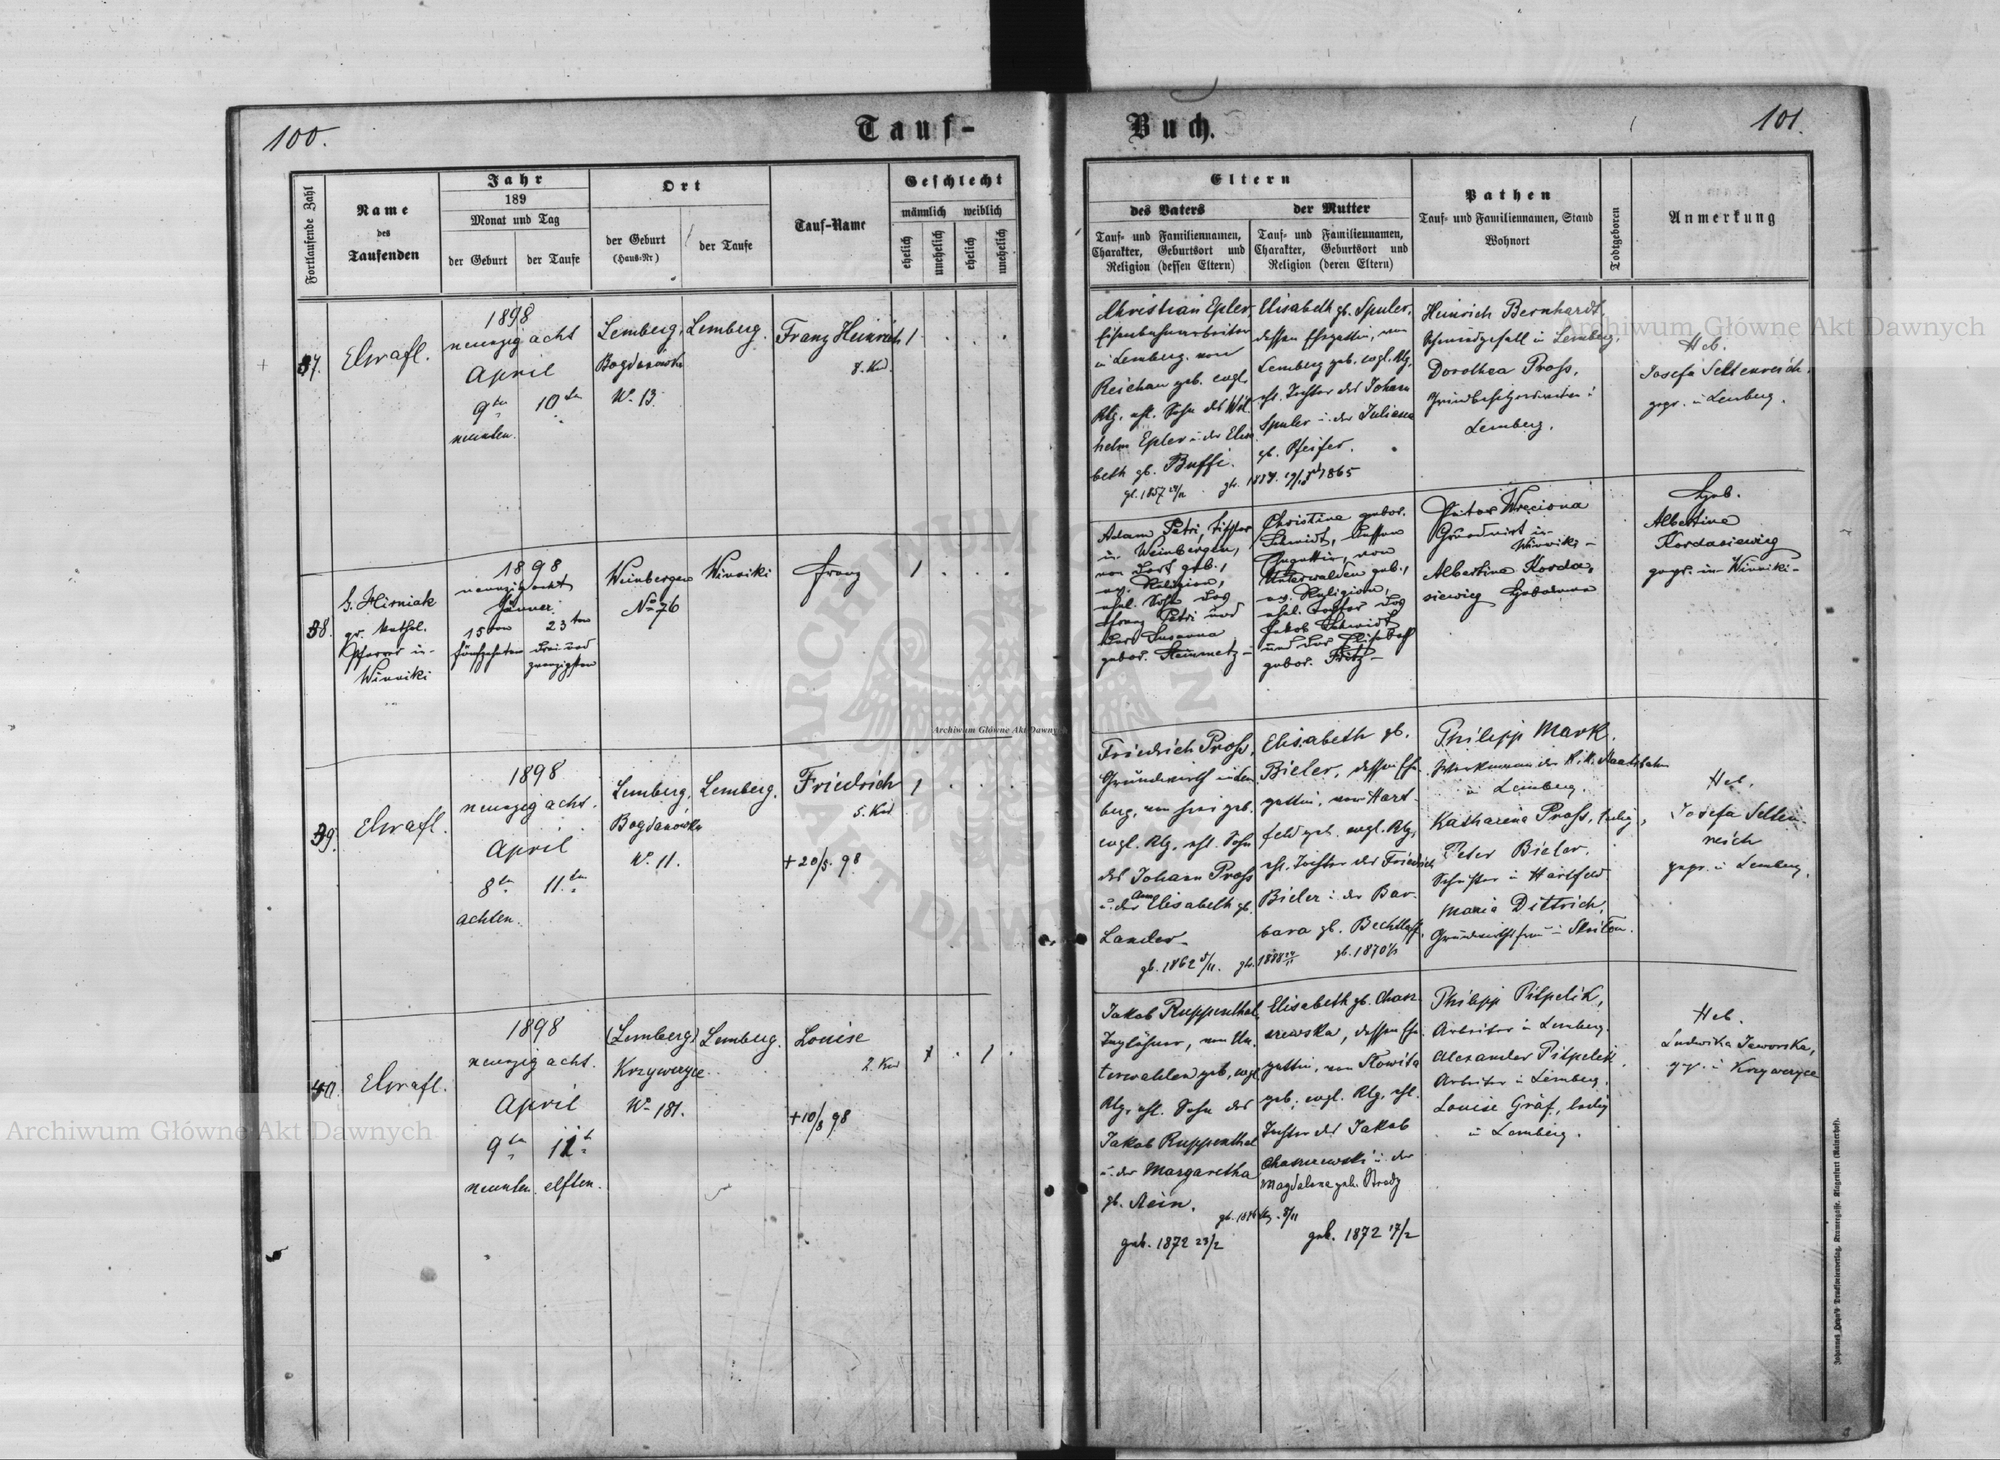 100.
Tauf-
Fortlaufende Zahl
Name
des
Taufenden
Jahr
189
Monat und Tag
der Geburt
der Taufe
Ort
der Geburt
(Haus-Nr)
der Taufe
Tauf-Name
Geschlecht
männlich weiblich
ehelich
unehelich
ehelich
unehelich
37.
1898
neunzig acht
April
9ten 10ten
neunten.
Lemberg,
Bogdanówka
No 13.
Lemberg.
Franz Heinrich
8. Kind.
1
38.
G. Hirniak
gr. kathol.
Pfarrer in
Winniki
1898
neunzig acht
Jänner
15ten 23ten
fünfzehnten drei und
zwanzigsten
Weinbergen
No 76
Winniki
Franz
1
39.
1898
neunzig acht.
April
8ten 11ten
achten.
Lemberg,
Bogdanówka
No 11.
Lemberg.
Friedrich
5. Kind
+20/3. 98
1
40.
1898
neunzig acht.
April
9ten
neunten. elften.
(Lemberg)
Krzywczyce
No 181.
Lemberg.
Louise
2. Kind
+10/8 98
1
Buch.
101.
Eltern
des Vaters
der Mutter
Tauf- und Familiennamen,
Charakter, Geburtsort und
Religion (dessen Eltern)
Tauf- und Familiennamen,
Charakter, Geburtsort und
Religion (deren Eltern)
Pathen
Tauf- und Familiennamen, Stand
Wohnort
Todtgeboren
Anmerkung
Christian Epler,
Eisenbahnarbeiter
in Lemberg, von
Reichau geb. evgl.
Rlg. ehl. Sohn des Wil-
helm Epler u. der Elisa-
beth gb. Buffi.
Elisabeth gb. Spuler,
dessen Ehegattin, von
Lemberg geb. evgl. Rlg.
ehl. Tochter des Johann
Spuler u. der Juliana
gb. Pfeifer.
Heinrich Bernhardt,
Schmiedgesell in Lemberg.
Dorothea Pross,
Lemberg.
Heb.
Josefa Seltenreich,
gepr. in Lemberg.
Adam Petri, Tischler
in Weinbergen,
von dort geb.,
ev. Religion,
ehel. Sohn des
Franz Petri und
der Susanna
gebor. Steinmetz
Christine gebor.
Schmidt, dessen
Ehegattin, von
Unterwalden geb.,
ev. Religion,
ehel. Tochter des
Jakob Schmidt
und der Elisabeth
gebor. Fritz
Peter Wreciona
Grundwirt in
Winniki
Albertine Korda-
siewicz Hebamme
Heb.
Albertine
Kordasiewicz
gepr. in Winniki
Friedrich Pross,
Grundwirth in Lem-
berg, von hier geb.
evgl. Rlg. ehl. Sohn
des Johann Pross
u. der Anna Elisabeth gb.
Lander
Elisabeth gb.
Bieler, dessen Ehe-
gattin, von Hart-
feld geb. evgl. Rlg.
ehl. Tochter des Friedrich
Bieler u. der Bar-
bara gb. Bechtloff.
Philipp Mark,
Werkmann der K. K. Staatsbahn
in Lemberg.
Katharina Pross, ledig,
Peter Bieler,
Schuster in Hartfeld
Maria Dittrich,
Heb.
Josefa Selten-
reich
gepr. in Lemberg.
Jakob Ruppenthal,
Taglöhner, von Un-
terwalden geb., evgl.
Rlg. ehl. Sohn des
Jakob Ruppenthal
u. der Margaretha
gb. Rein.
geb. 1872 23/2
dessen Ehe-
gattin, von Slowita
geb. evgl. Rlg. ehl.
Tochter des Jakob
Magdalena geb.
geb. 1872 17/2
Philipp Pitpelik,
Arbeiter in Lemberg.
Alexander Pitpelik,
Arbeiter in Lemberg.
Louise Gräf, ledig
in Lemberg.
Heb.
Ludwika Jaworska,
gepr. in Krzywczyce
Johannes Heyn's Druksortenverlag, Kramergasse, Klagenfurt (Mainerhof).
Archiwum Główne Akt Dawnych
Archiwum Główne Akt Dawnych
Archiwum Główne Akt Dawnych